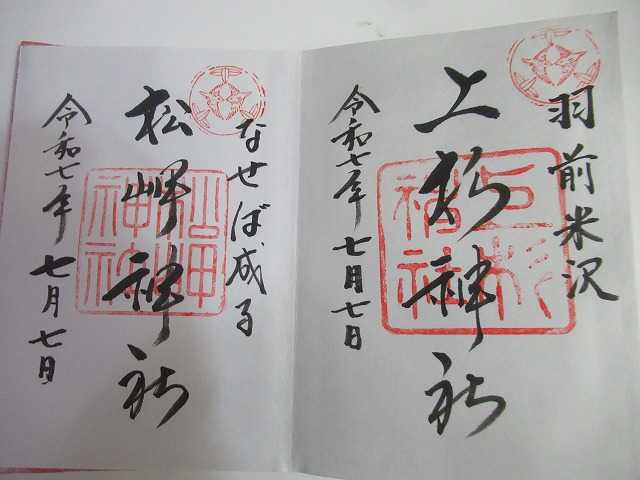 羽前米沢
上杉神社
令和七年 七月七日
上杉神社
なせば成る
松岬神社
令和七年 七月七日
松岬神社